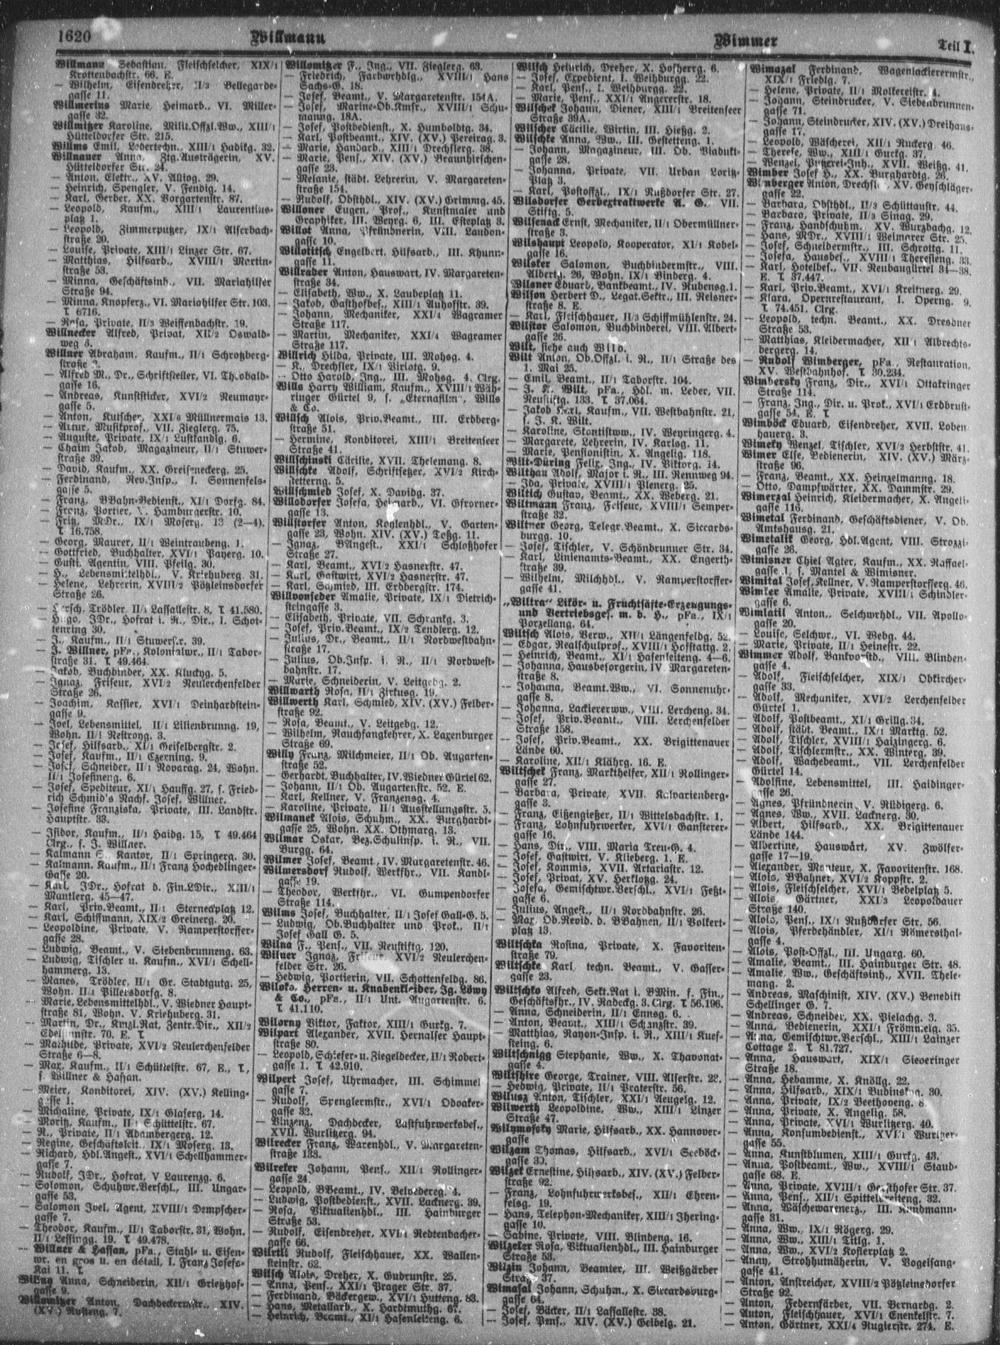 1620
Willmann
Wimmer
Teil I.
Willmann Sebastian, Fleischselcher, XIX/1
Krottenbachstr. 66. E.
— Wilhelm, Eisendreher, II/2 Bellegarde-
gasse 11.
Willmerius Marie, Heimarb. VI. Miller-
gasse 32.
Willmitzer Karoline, Milit.Offzl.Ww., XIII/1
Hütteldorfer Str. 215.
Willms Emil, Ledertechn., XIII/1 Hadikg. 32.
Willnauer Anna, Ztg.Austrägerin, XV.
Hütteldorfer Str. 24.
— Anton, Elektr., XV. Alliog. 29.
— Heinrich, Spengler, V. Fendig. 14.
— Karl, Gerber, XX. Vorgartenstr. 87.
— Leopold, Kaufm., XIII/1 Laurentius-
platz 1.
— Leopold, Zimmerputzer, IX/1 Alserbach-
straße 20.
— Louise, Private, XIII/1 Linzer Str. 67.
— Matthias, Hilfsarb., XVIII/1 Martin-
straße 53.
— Minna, Geschäftsinh., VII. Mariahilfer
Straße 94.
— Minna, Knopferz., VI. Mariahilfer Str. 103.
T 6716.
— Rosa, Private, II/3 Weiffenbachstr. 19.
Willnecker Alfred, Privat, XII/2 Oswald-
weg 3.
Willner Abraham, Kaufm., II/1 Schroßberg-
straße 2.
— Alfred M., Dr., Schriftsteller, VI. Theobald-
gasse 16.
— Andreas, Kunststicker, XVI/2 Neumayr-
gasse 5.
— Anton, Kutscher, XXI/6 Müllnermais 13.
— Artur, Musikprof., VII. Zieglerg. 75.
— Auguste, Private, IX/1 Lustkandlg. 6.
— Chaim Jakob, Magazineur, II/1 Stuwer-
straße 39.
— David, Kaufm., XX. Greiseneckerg. 25.
— Ferdinand, Rev.Insp., I. Sonnenfels-
gasse 5.
— Franz, BBahn-Bedienst., XI/1 Dorfg. 84.
— Franz, Portier, X. Hamburgerstr. 10.
— Fritz, MDr., IX/1 Moserg. 13 (2—4).
T 16.758.
— Georg, Maurer, II/1 Weintraubeng. 1.
— Gottfried, Buchhalter, XVI/1 Payerg. 10.
— Gusti, Agentin, VIII. Pfeilg. 30.
— H., Lebensmittelhdl., V. Kriehuberg. 31.
— Helene, Lehrerin, XVIII/2 Pötzleinsdorfer
Straße 26.
— Hersch, Trödler, II/1 Lassallestr. 8, T 41.580.
— Hugo, JDr., Hofrat i. R., Dir., I. Schot-
tenring 30.
— J., Kaufm., II/1 Stuwerstr. 39.
— J. Willner, pFa., Kolonialw., II/1 Tabor-
straße 31. T 49.464.
— Jakob, Buchbinder, XX. Kluckyg. 5.
— Ignaz, Friseur, XVI/2 Neulerchenfelder
Straße 26.
— Joachim, Kassier, XVI/1 Deinhardstein-
gasse 9.
— Joel, Lebensmittel, II/1 Lilienbrunng. 19,
Wohn. II/1 Nestrong. 3.
— Josef, Hilfsarb., XI/1 Geiselbergstr. 2.
— Josef, Kaufm., II/1 Czerning. 9.
— Josef, Schneider, II/1 Novarag. 24, Wohn.
II/1 Josefineng. 6.
— Josef, Spediteur, XI/1 Hauffg. 27, s. Fried-
rich Schmid's Nachf. Josef Willner.
— Josefine Franziska, Private, III. Landstr.
Hauptstr. 33.
— Isidor, Kaufm., II/1 Haidg. 15, T 49.464
Clrg., s. J. Willner.
— Kalmann S., Kantor, II/1 Springerg. 30.
— Kalmann, Kaufm., II/1 Franz Hochedlinger-
Gasse 20.
— Karl, JDr., Hofrat d. Fin.LDir., XIII/1
Mantlerg. 45—47.
— Karl, Priv.Beamt., II/1 Sterneckplatz 12.
— Karl, Schiffmann, XIX/2 Greinerg. 20.
— Leopoldine, Private, V. Ramperstorffer-
gasse 28.
— Ludwig, Beamt., V. Siebenbrunneng. 63.
— Ludwig, Tischler u. Kaufm., XVI/1 Schell-
hammerg. 13.
— Manes, Trödler, II/1 Gr. Stadtgutg. 25,
Wohn. II/1 Pillersdorfg. 8.
— Marie, Lebensmittelhdl., V. Wiedner Haupt-
straße 81, Wohn. V. Kriehuberg. 31.
— Martin, Dr., Kmzl.Rat, Zentr.Dir., XII/2
Edelsinnstr. 70. E. T
— Mathilde, Private, XVI/2 Neulerchenfelder
Straße 6—8.
— Max, Kaufm., II/1 Schüttelstr. 67, E., T,
s. Willner & Hassan.
— Meier, Konditorei, XIV. (XV.) Kelling-
gasse 1.
— Michaline, Private, IX/1 Glaserg. 14.
— Moritz, Kaufm., II/1 Schüttelstr. 67.
— R., Private, II/1 Adambergerg. 12.
— Regine, Geschäftsleit., IX/1 Moserg. 13.
— Richard, Hdl.Angest., XVI/1 Schellhammer-
gasse 7.
— Rudolf, JDr., Hofrat, V. Laurenzg. 6.
— Salomon, Schuhw.Verschl., III. Ungar-
gasse 53.
— Salomon Joel, Agent, XVIII/1 Dempscher-
gasse 7.
— Theodor, Kaufm., II/1 Taborstr. 31, Wohn.
II/1 Lessingg. 19. T 49.478.
— Willner & Hassan, pFa., Stahl- u. Eisen-
wr. en gros u. en détail, I. Franz Josefs-
Kai 11. T
Willng Anna, Schneiderin, XII/1 Grießhof-
gasse 9.
Willomitzer Anton, Dachdeckermstr., XIV.
Willomitzer F., Ing., VII. Zieglerg. 63.
— Friedrich, Farbwrhdlg., XVIII/1 Hans
Sachs-G. 18.
— Josef, Beamt., V. Margaretenstr. 151A.
— Josef, Marine-Ob.Kmsr., XVIII/1 Schu-
manng. 18A.
— Josef, Postbedienst., X. Humboldtg. 34.
— Karl, Postbeamt., XIV. (XV.) Pereirag. 3.
— Marie, Handarb., XIII/1 Drechslerg. 38.
— Marie, Pens., XIV. (XV.) Braunhirschen-
gasse 23.
— Melanie, städt. Lehrerin, V. Margareten-
straße 154.
— Rudolf, Obsthdl., XIV. (XV.) Grimmg. 45.
Willoner Eugen, Prof., Kunstmaler und
Graphiker, III. Wohg. 6, III. Eslarpl. 3.
Willot Anna, Pfründnerin, VIII. Laudon-
gasse 10.
Willotitsch Engelbert, Hilfsarb., III. Khunn-
gasse 11.
Willrader Anton, Hauswart, IV. Margareten-
straße 34.
— Elisabeth, Ww., X. Laubeplatz 11.
— Jakob, Gasthofbes., XIII/1 Auhofstr. 39.
— Johann, Mechaniker, XXI/4 Wagramer
Straße 117.
— Martin, Mechaniker, XXI/4 Wagramer
Straße 117.
Willrich Hilda, Private, III. Mohsg. 4.
— K., Drechsler, IX/1 Viriotg. 9.
— Otto Harold, Ing., III. Mohsg. 4. Clrg.
Wills Harry William, Kaufm., XVIII/1 Wäh-
ringer Gürtel 9, s. „Eternafilm", Wills
& Co.
Willsch Alois, Priv.Beamt., III. Erdberg-
straße 51.
— Hermine, Konditorei, XIII/1 Breitenseer
Straße 41.
Willschinski Cäcilie, XVII. Thelemang. 8.
Willschke Adolf, Schriftsetzer, XVI/2 Kirch-
stetterng. 5.
Willschmied Josef, X. Davidg. 37.
Willsdorfer Josefa, Heimarb., VI. Gfrorner-
gasse 13.
Willstorfer Anton, Kohlenhdl., V. Garten-
gasse 23, Wohn. XIV. (XV.) Toßg. 11.
— Ignaz, BAngest., XXI/1 Schloßhofer
Straße 27.
— Karl, Beamt., XVI/2 Hasnerstr. 47.
— Karl, Gastwirt, XVI/2 Hasnerstr. 47.
— Karl, Schmied, III. Erdbergstr. 174.
Willvonseder Amalie, Private, IX/1 Dietrich-
steingasse 3.
— Elisabeth, Private, VII. Schrankg. 3.
— Josef, Priv.Beamt., IX/2 Tendlerg. 12.
— Julius, Dr., Beamt., II/1 Nordwestbahn-
straße 17.
— Julius, Ob.Insp. i. R., II/1 Nordwest-
bahnstr. 17.
— Marie, Schneiderin, V. Leitgebg. 2.
Willwarth Rosa, II/1 Zirkusg. 19.
Willwerth Karl, Schmied, XIV. (XV.) Felber-
straße 92.
— Rosa, Beamt., V. Leitgebg. 12.
— Wilhelm, Rauchfangkehrer, X. Laxenburger
Straße 69.
Willy Franz, Milchmeier, II/1 Ob. Augarten-
straße 52.
— Gerhardt, Buchhalter, IV. Wiedner Gürtel 62.
— Johann, II/1 Ob. Augartenstr. 52. E.
— Karl, Kellner, V. Franzensg. 4.
— Karoline, Private, II/1 Ausstellungsstr. 5.
Wilmanek Alois, Schuhm., XX. Burghardt-
gasse 25, Wohn. XX. Othmarg. 13.
Wilmar Oskar, Bez.Schulinsp. i. R., VII.
Burgg. 64.
Wilmer Josef, Beamt., IV. Margaretenstr. 46.
Wilmersdorf Rudolf, Werkfhr., VII. Kandl-
gasse 19.
— Theodor, Werkfhr., VI. Gumpendorfer
Straße 114.
Wilms Josef, Buchhalter, II/1 Josef Gall-G. 5.
— Ludwig, Ob.Buchhalter und Prok., II/1
Josef Gall G. 5.
Wilna F., Pens., VII. Neustiftg. 120.
Wilner Ignaz, Friseur, XVI/2 Neulerchen-
felder Str. 26.
— Hedwig, Plätterin, VII. Schottenfeldg. 86.
Wiloka, Herren- u. Knabenkleider, Jg. Löwy
& Co., pFa., II/1 Unt. Augartenstr. 6.
T 41.110.
Wilorny Viktor, Faktor, XIII/1 Gurkg. 7.
Wilpart Alexander, XVII. Hernalser Haupt-
straße 80.
— Leopold, Schiefer- u. Ziegeldecker, II/1 Robert-
gasse 1. T 42.910.
Wilpert Josef, Uhrmacher, III. Schimmel
gasse 7.
— Rudolf, Spenglermstr., XVI/1 Odoaker-
gasse 32.
— Vinzenz, Dachdecker, Lastfuhrwerksbes.,
XVII. Wurlitzerg. 94.
Wilrecker Franz, Warenhdl., V. Margareten-
straße 138.
Wilreker Johann, Pens., XII/1 Rollinger-
gasse 24.
— Leopold, BBeamt., IV. Belvedereg. 4.
— Ludwig, Postbedienst., XVII. Lacknerg. 39.
— Rosa, Viktualienhdl., III. Hainburger
Straße 53.
— Rudolf, Eisendreher, XVI/1 Redtenbacher-
gasse 66.
Wilrill Rudolf, Fleischhauer, XX. Wallen-
steinstr. 62.
Wilsch Alois, Dreher, X. Gudrunstr. 25.
— Anna, Pens., XXI/1 Prager Str. 37.
— Ferdinand, Bäckergew., XVI/1 Hutteng. 83.
— Hans, Metallarb., X. Hardtmuthg. 67.
— Heinrich, Beamt., XI/1 Hasenleiteng. 6.
Wilsch Heinrich, Dreher, X. Hofherrg. 6.
— Josef, Expedient, I. Weihburgg. 22.
— Karl, Pens., I. Weihburgg. 22.
— Marie, Pens., XXI/1 Angererstr. 18.
Wilschek Johann, Diener, XIII/1 Breitenseer
Straße 39A.
Wilscher Cäcilie, Wirtin, III. Hießg. 2.
Wilschke Anna, Ww., III. Gestetteng. 1.
— Johann, Magazineur, III. Ob. Viadukt-
gasse 28.
— Johanna, Private, VII. Urban Loritz-
Platz 3.
— Karl, Postoffzl., IX/1 Nußdorfer Str. 27.
Wilsdorfer Gerbextraktwerke A. G., VII.
Stiftg. 5.
Wilsenack Ernst, Mechaniker, II/1 Obermüllner-
straße 3.
Wilshaupt Leopold, Kooperator, XI/1 Kobel-
gasse 16.
Wilsker Salomon, Buchbindermstr., VIII.
Albertg. 26, Wohn. IX/1 Binderg. 4.
Wilsner Eduard, Bankbeamt., IV. Rubensg. 1.
Wilson Herbert D., Legat.Sektr., III. Reisner-
straße 8. E.
— Karl, Fleischhauer, II/3 Schiffmühlenstr. 24.
Wilstor Salomon, Buchbinderei, VIII. Albert-
gasse 26.
Wilt, siehe auch Wild.
Wilt Anton, Ob.Offzl. i. R., II/1 Straße des
1. Mai 25.
— Emil, Beamt., II/1 Taborstr. 104.
— J. K. Wilt, pFa., Hdl. m. Leder, VII.
Neustiftg. 133. T 37.064.
— Jakob Karl, Kaufm., VII. Westbahnstr. 21,
s. J. K. Wilt.
— Karoline, Skontistinw., IV. Weyringerg. 4.
— Margarete, Lehrerin, IV. Karlsg. 11.
— Marie, Pensionistin, X. Angelig. 118.
Wilt-Düring Felix, Ing., IV. Viktorg. 14.
Wilthau Adolf, Major i. R., III. Rennweg 94.
— Ida, Private, XVIII/1 Plenerg. 25.
Wiltich Gustav, Beamt., XX. Weberg. 21.
Wiltmann Franz, Friseur, XVIII/1 Semper-
straße 32.
Wiltner Georg, Telegr.Beamt., X. Siccards-
burgg. 10.
— Josef, Tischler, V. Schönbrunner Str. 34.
— Karl, Linienamts-Beamt., XX. Engerth-
straße 39.
— Wilhelm, Milchhdl., V. Ramperstorffer-
gasse 41.
„Wiltra" Likör- u. Fruchtsäfte-Erzeugungs-
und Vertriebsges. m. b. H., pFa., IX/1
Porzellang. 64.
Wiltsch Alois, Verw., XII/1 Längenfeldg. 52.
— Edgar, Realschulprof., XVIII/1 Hofstattg. 2.
— Heinrich, Beamt., XI/1 Hasenleiteng. 4—6.
— Johanna, Hausbesorgerin, IV. Margareten-
straße 8.
— Johanna, Beamt.Ww., VI. Sonnenuhr-
gasse 8.
— Johanna, Lackiererww., VIII. Lercheng. 34.
— Josef, Priv.Beamt., VIII. Lerchenfelder
Straße 158.
— Josef, Priv.Beamt., XX. Brigittenauer
Lände 60.
— Karoline, XII/1 Klährg. 16. E.
Wiltschek Franz, Markthelfer, XII/1 Rollinger-
gasse 27.
— Barbara, Private, XVII. Kalvarienberg-
gasse 3.
— Franz, Eisengießer, II/1 Wittelsbachstr. 1.
— Franz, Lohnfuhrwerker, XVI/1 Gansterer-
gasse 16.
— Hans, Dir., VIII. Maria Treu-G. 4.
— Josef, Gastwirt, V. Kliebergg. 1. E.
— Josef, Kommis, XVII. Artariastr. 12.
— Josef, Privat, XV. Herklotzg. 24.
— Josefa, Gemischtwr.Verschl., XVI/1 Feßt-
gasse 6.
— Julius, Angest., II/1 Nordbahnstr. 26.
— Mar, Ob.Revid. d. BBahnen, II/1 Volkert-
platz 13.
Wiltschka Rosina, Private, X. Favoriten-
straße 79.
Wiltschke Karl, techn. Beamt., V. Gasser-
gasse 23.
Wiltschko Alfred, Sekt.Rat i. BMin. f. Fin.,
Geschäftsfhr., IV. Radeckg. 3. Clrg. T 56.196.
— Anna, Schneiderin, II/1 Ennsg. 6.
— Anton, Beamt., XIII/1 Schanzstr. 39.
— Matthias, Rayon-Insp. i. R., XIII/1 Kuef-
steing. 6.
Wiltschnigg Stephanie, Ww., X. Thavonat-
gasse 4.
Wiltshire George, Trainer, VIII. Alserstr. 22.
— Hedwig, Private, II/1 Praterstr. 56.
Wilusz Anton, Tischler, XXI/1 Aungelg. 12.
Wilwerth Leopoldine, Ww., XIII/1 Linzer
Straße 47.
Wilymofsky Marie, Hilfsarb., XX. Hannover-
gasse
Wilzam Thomas, Hilfsarb., XVI/1 Seeböck-
gasse 30.
Wilzek Ernestine, Hilfsarb., XIV. (XV.) Felber-
straße 92.
— Franz, Lohnfuhrwerksbes., XII/1 Ehren-
felsg. 19.
— Hans, Telephon-Mechaniker, XIII/1 Jhering-
gasse 10.
— Sabine, Private, VIII. Blindeng. 16.
Wilzeker Rosa, Viktualienhdl., III. Hainburger
Straße 53.
Wilzin Johann, Beamter, III. Weißgärber
Straße 37.
Wimasal Johann, Schuhm., X. Siccardsburg-
gasse 64.
— Josef, Bäcker, II/1 Lassallestr. 38.
— Josef, Pens., XIV. (XV.) Geibelg. 21.
Wimazal Ferdinand, Wagenlackierermstr.,
XIX/1 Friedlg. 7.
— Helene, Private, II/1 Molkereistr. 4.
— Johann, Steindrucker, V. Siebenbrunnen-
gasse 71.
— Johann, Steindrucker, XIV. (XV.) Dreihaus-
gasse 17.
— Leopold, Wäscherei, XII/1 Ruckerg. 46.
— Therese, Ww., XIII/1 Gurkg. 37.
— Wenzel, Putzerei-Inh., XVII. Weißg. 41.
Wimber Josef H., XX. Burghardtg. 26.
Wimberger Anton, Drechsler, XV. Geyschläger-
gasse 22.
— Barbara, Obsthdl., II/3 Schüttaustr. 44.
— Barbara, Private, II/3 Sinag. 29.
— Franz, Handschuhm., XV. Wurzbachg. 12.
— Hans, MDr., XVIII/1 Weimarer Str. 25.
— Josef, Schneidermstr., III. Schrottg. 11.
— Josefa, Hausbes., XVIII/1 Theresieng. 33.
— Karl, Hotelbes., VII. Neubaugürtel 34—38.
E. T 37.447.
— Karl, Priv.Beamt., XVI/1 Kreitnerg. 29.
— Klara, Opernrestaurant, I. Operng. 9.
T 74.451. Clrg.
— Leopold, techn. Beamt., XX. Dresdner
Straße 53.
— Matthias, Kleidermacher, XII/1 Albrechts-
bergerg. 14.
— Rudolf Wimberger, pFa., Restauration,
XV. Westbahnhof. T 30.234.
Wimbersky Franz, Dir., XVI/1 Ottakringer
Straße 114.
— Franz, Ing., Dir. u. Prok., XVI/1 Erdbrust-
gasse 54. E. T
Wimböck Eduard, Eisendreher, XVII. Loben
hauerg. 3.
Wimed Wenzel, Tischler, XVI/2 Herbststr. 41.
Wimer Else, Bedienerin, XIV. (XV.) März-
straße 96.
— Franz, Beamt., XX. Heinzelmanng. 18.
— Otto, Dampfwärter, XX. Dammstr. 29.
Wimerzal Heinrich, Kleidermacher, X. Angeli-
gasse 116.
Wimetal Ferdinand, Geschäftsdiener, V. Ob.
Amtshausg. 21.
Wimetalik Georg, Hdl.Agent, VIII. Strozzi-
gasse 26.
Wimisner Chiel Agter, Kaufm., XX. Raffael-
gasse 1, s. Mantel & Wimisner.
Wimital Josef, Kellner, V. Ramperstofferg. 46.
Wimker Amalie, Private, XVIII/1 Schindler-
gasse 6.
Wimlatil Anton, Selchwrhdl., VII. Apollo-
gasse 20.
— Louise, Selchwr., VI. Webg. 44.
— Marie, Private, II/1 Heinestr. 22.
Wimmer Adolf, Bankvostbd., VIII. Blinden-
gasse 4.
— Adolf, Fleischselcher, XIX/1 Obkircher-
gasse 33.
— Adolf, Mechaniker, XVI/2 Lerchenfelder
Gürtel 1.
— Adolf, Postbeamt., XI/1 Grillg. 34.
— Adolf, städt. Beamt., IX/1 Marktg. 52.
— Adolf, Tischler, XVIII/1 Haizingerg. 6.
— Adolf, Tischlermstr., XX. Winterg. 39.
— Adolf, Wachebeamt., VII. Lerchenfelder
Gürtel 14.
— Adolfine, Lebensmittel, III. Haidinger-
gasse 26.
— Agnes, Pfründnerin, V. Rüdigerg. 6.
— Agnes, Ww., XVII. Lacknerg. 30.
— Albert, Hilfsarb., XX. Brigittenauer
Lände 144.
— Albertine, Hauswart, XV. Zwölfer-
gasse 17—19.
— Alexander, Monteur, X. Favoritenstr. 168.
— Alois, BBahner, XVI/2 Koppstr. 2.
— Alois, Fleischselcher, XVI/1 Bebelplatz 5.
— Alois, Gärtner, XXI/3 Leopoldauer
Straße 140.
— Alois, Pens., IX/1 Nußdorfer Str. 56.
— Alois, Pferdehändler, XI/1 Römersthal-
gasse 4.
— Alois, Post-Offzl., III. Ungarg. 60.
— Amalie, Beamt., III. Hainburger Str. 48.
— Amalie, Ww., Geschäftsinh., XVII. Thele-
mang. 2.
— Andreas, Maschinist, XIV. (XV.) Benedikt
Schellinger G. 7.
— Andreas, Schneider, XX. Pielachg. 3.
— Anna, Bedienerin, XXI/1 Frömnelg. 35.
— Anna, Gemischtwr.Verschl., XIII/1 Lainzer
Cottage 2. T 81.727.
— Anna, Hauswart, XIX/1 Sieveringer
Straße 18.
— Anna, Hebamme, X. Knöllg. 22.
— Anna, Hilfsarb., XIX/1 Rubinsteing. 30.
— Anna, Private, IX/2 Beethoveng. 8.
— Anna, Private, X. Angelig. 58.
— Anna, Private, XVI/1 Wurlitzerg. 40.
— Anna, Konsumbedienst., XVI/1 Wurlitzer-
gasse 55.
— Anna, Kunstblumen, XIII/1 Gurkg. 43.
— Anna, Postbeamt., Ww., XVIII/1 Staud-
gasse 68. E.
— Anna, Private, XVIII/1 Gersthofer Str. 37.
— Anna, Pens., XII/1 Spittelbreiteng. 32.
— Anna, Wäschewarenerz., III. Handmann-
gasse 31.
— Anna, Ww., IX/1 Rögerg. 29.
— Anna, Ww., XIII/1 Titlg. 1.
— Anna, Ww., XVI/2 Koflerplatz 2.
— Anny, Strohhutnäherin, V. Vogelsang-
gasse 41.
— Anton, Anstreicher, XVIII/2 Pötzleinsdorfer
Straße 92.
— Anton, Federnfärber, VII. Bernardg. 2.
— Anton, Fleischhauer, XVI/1 Enenkelstr. 7.
— Anton, Gärtner, XXI/4 Rugierstr. 274. E.